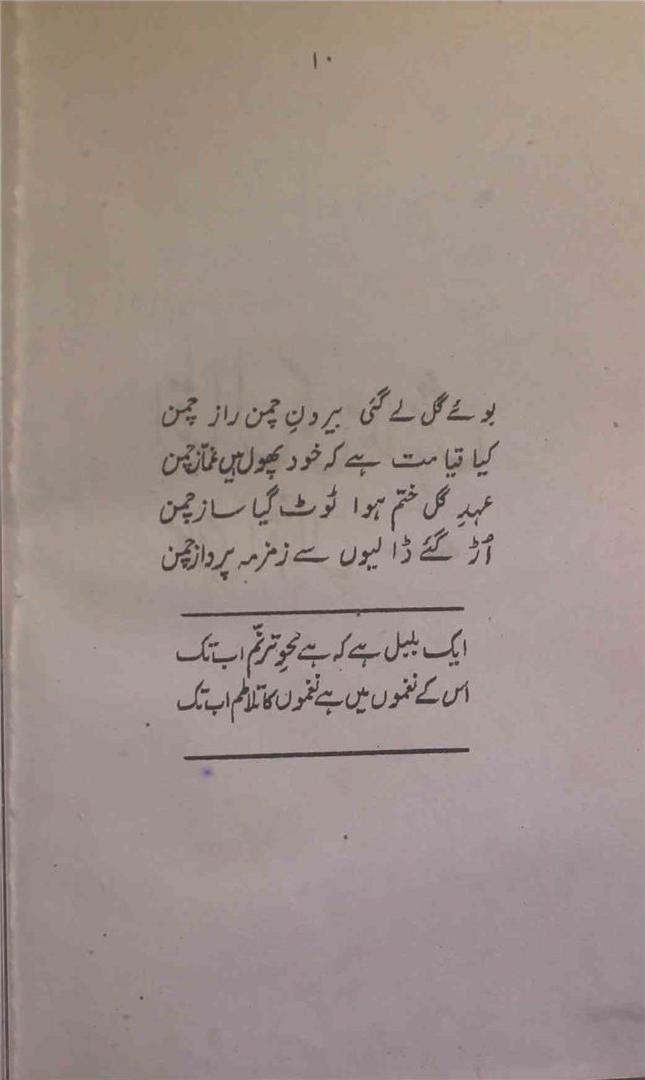 ۱۰
بوئے گل لے گئی بیرونِ چمن راز چمن
کیا قیامت ہے کہ خود پھول ہیں غمّاز چمن
عہدِ گل ختم ہوا ٹوٹ گیا ساز چمن
اُڑ گئے ڈالیوں سے زمزمہ پرداز چمن
ایک بلبل ہے کہ ہے محوِ ترنّم اب تک
اس کے نغموں میں ہے نغموں کا تلاطم اب تک